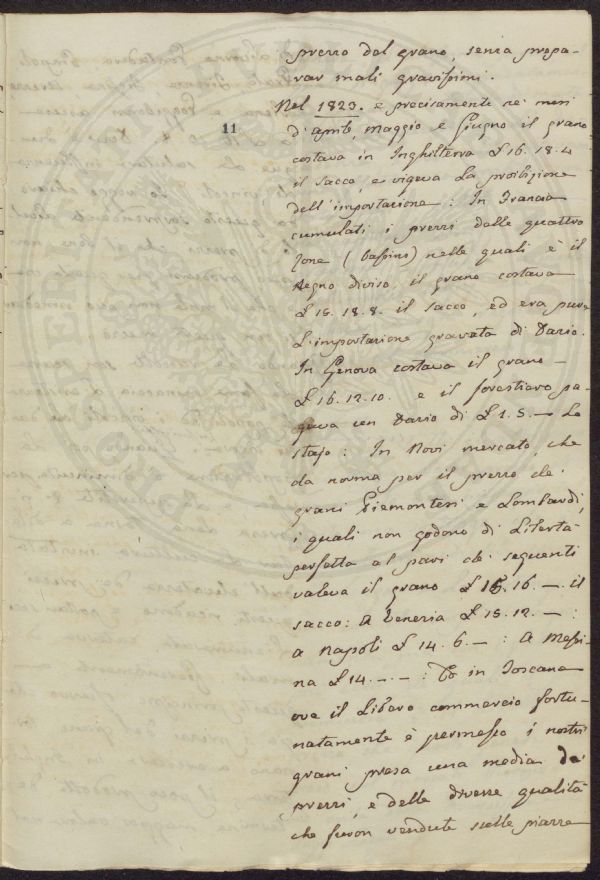 prezzo del grano, senza prepa-
rar mali gravissimi.
Nel 1823. e precisamente ne' mesi
11
d'aprile, maggio e giugno il grano
costava in Inghilterra £ 16. 18. 4
il sacco, e vigeva la proibizione
dell'importazione: In Francia
cumulati i prezzi delle quattro
zone (bassins) nelle quali è il
Regno diviso, il grano costava
£ 18. 18. 8. il sacco, ed era pure
l'importazione gravata di Dazio.
In Genova costava il grano -
£ 16. 12. 10. e il forestiero pa-
gava un Dazio di £ 1. 5. — lo
stajo: In Novi mercato, che
da norma per il prezzo de'
grani Piemontesi e Lombardi,
i quali non godono di libertà
perfetta al pari de' seguenti
valeva il grano £ 15. 16. — il
sacco: A Venezia £ 15. 12. — :
a Napoli £ 14. 6. — : A Messi-
na £ 14. — . — : in Toscana
ove il libero commercio fortu-
natamente è permesso i nostri
grani presa una media de'
prezzi, e delle diverse qualità
che furon vendute sulle piazze